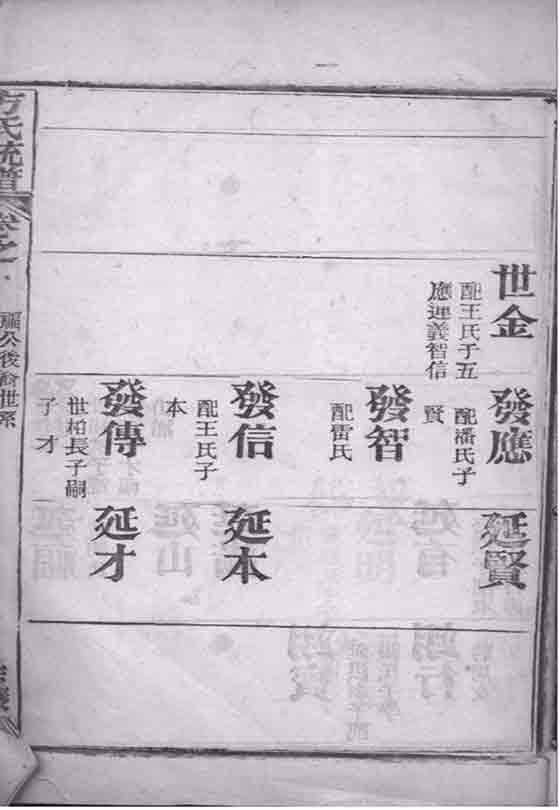 世金
配王氏子五
應迎義智信
發應
配潘氏子
賢
發智
配雷氏
發信
配王氏子
本
發傳
世柏長子嗣
子才
延賢
延本
延才
方氏統譜
卷之
公後裔世系